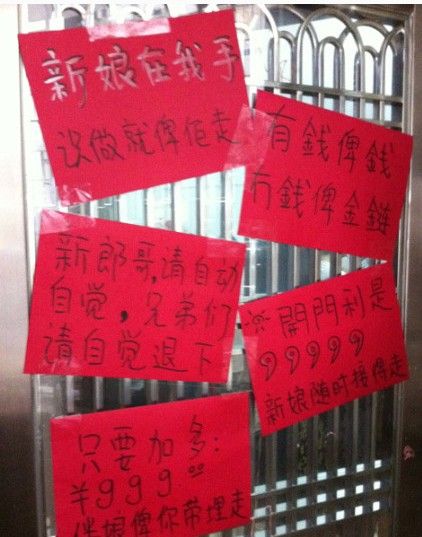 新娘在我手
识做就俾佢走
有錢俾錢
冇錢俾金鏈
新郎哥,请自动
自觉,兄弟们
请自觉退下
※開門利是
99999
新娘随时接得走
只要加多:
¥999.00
伴娘俾你带埋走